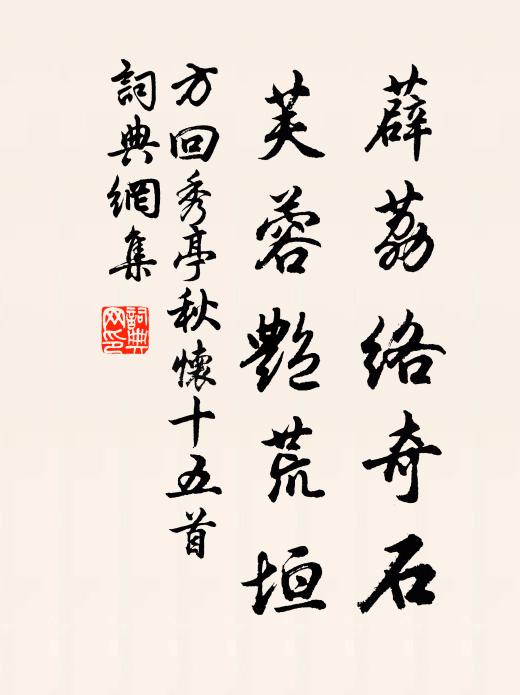 薜荔络奇石
芙蓉艷荒垣
方回秀亭秋懷十五首
詞典網集
詞典网印